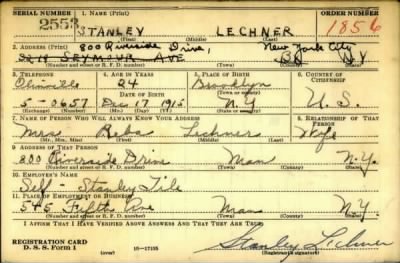 SERIAL NUMBER 1. NAME (Print) ORDER NUMBER
2553 STANLEY LECHNER 1856
(First) (Middle) (Last)
2. ADDRESS (Print) 800 Riverside Drive, New York City
SEYMOUR AVE BX NY
(Number and street or R. F. D. number) (Town) (County) (State)
3. TELEPHONE 4. AGE IN YEARS 5. PLACE OF BIRTH 6. COUNTRY OF CITIZENSHIP
Olinville 24 Brooklyn
DATE OF BIRTH (Town or county)
5-0657 Dec 17 1915 N.Y. U.S.
(Exchange) (Number) (Mo.) (Day) (Yr.) (State or country)
7. NAME OF PERSON WHO WILL ALWAYS KNOW YOUR ADDRESS 8. RELATIONSHIP OF THAT PERSON
Mrs Reba Lechner Wife
(Mr., Mrs., Miss) (First) (Middle) (Last)
9. ADDRESS OF THAT PERSON
800 Riverside Drive Man N.Y.
(Number and street or R. F. D. number) (Town) (County) (State)
10. EMPLOYER'S NAME
Self - Stanley Tile
11. PLACE OF EMPLOYMENT OR BUSINESS
545 Fifth Ave Man N.Y.
(Number and street or R. F. D. number) (Town) (County) (State)
I AFFIRM THAT I HAVE VERIFIED ABOVE ANSWERS AND THAT THEY ARE TRUE.
REGISTRATION CARD
D. S. S. Form 1 (over) 16-17105 Stanley Lechner
(Registrant's signature)